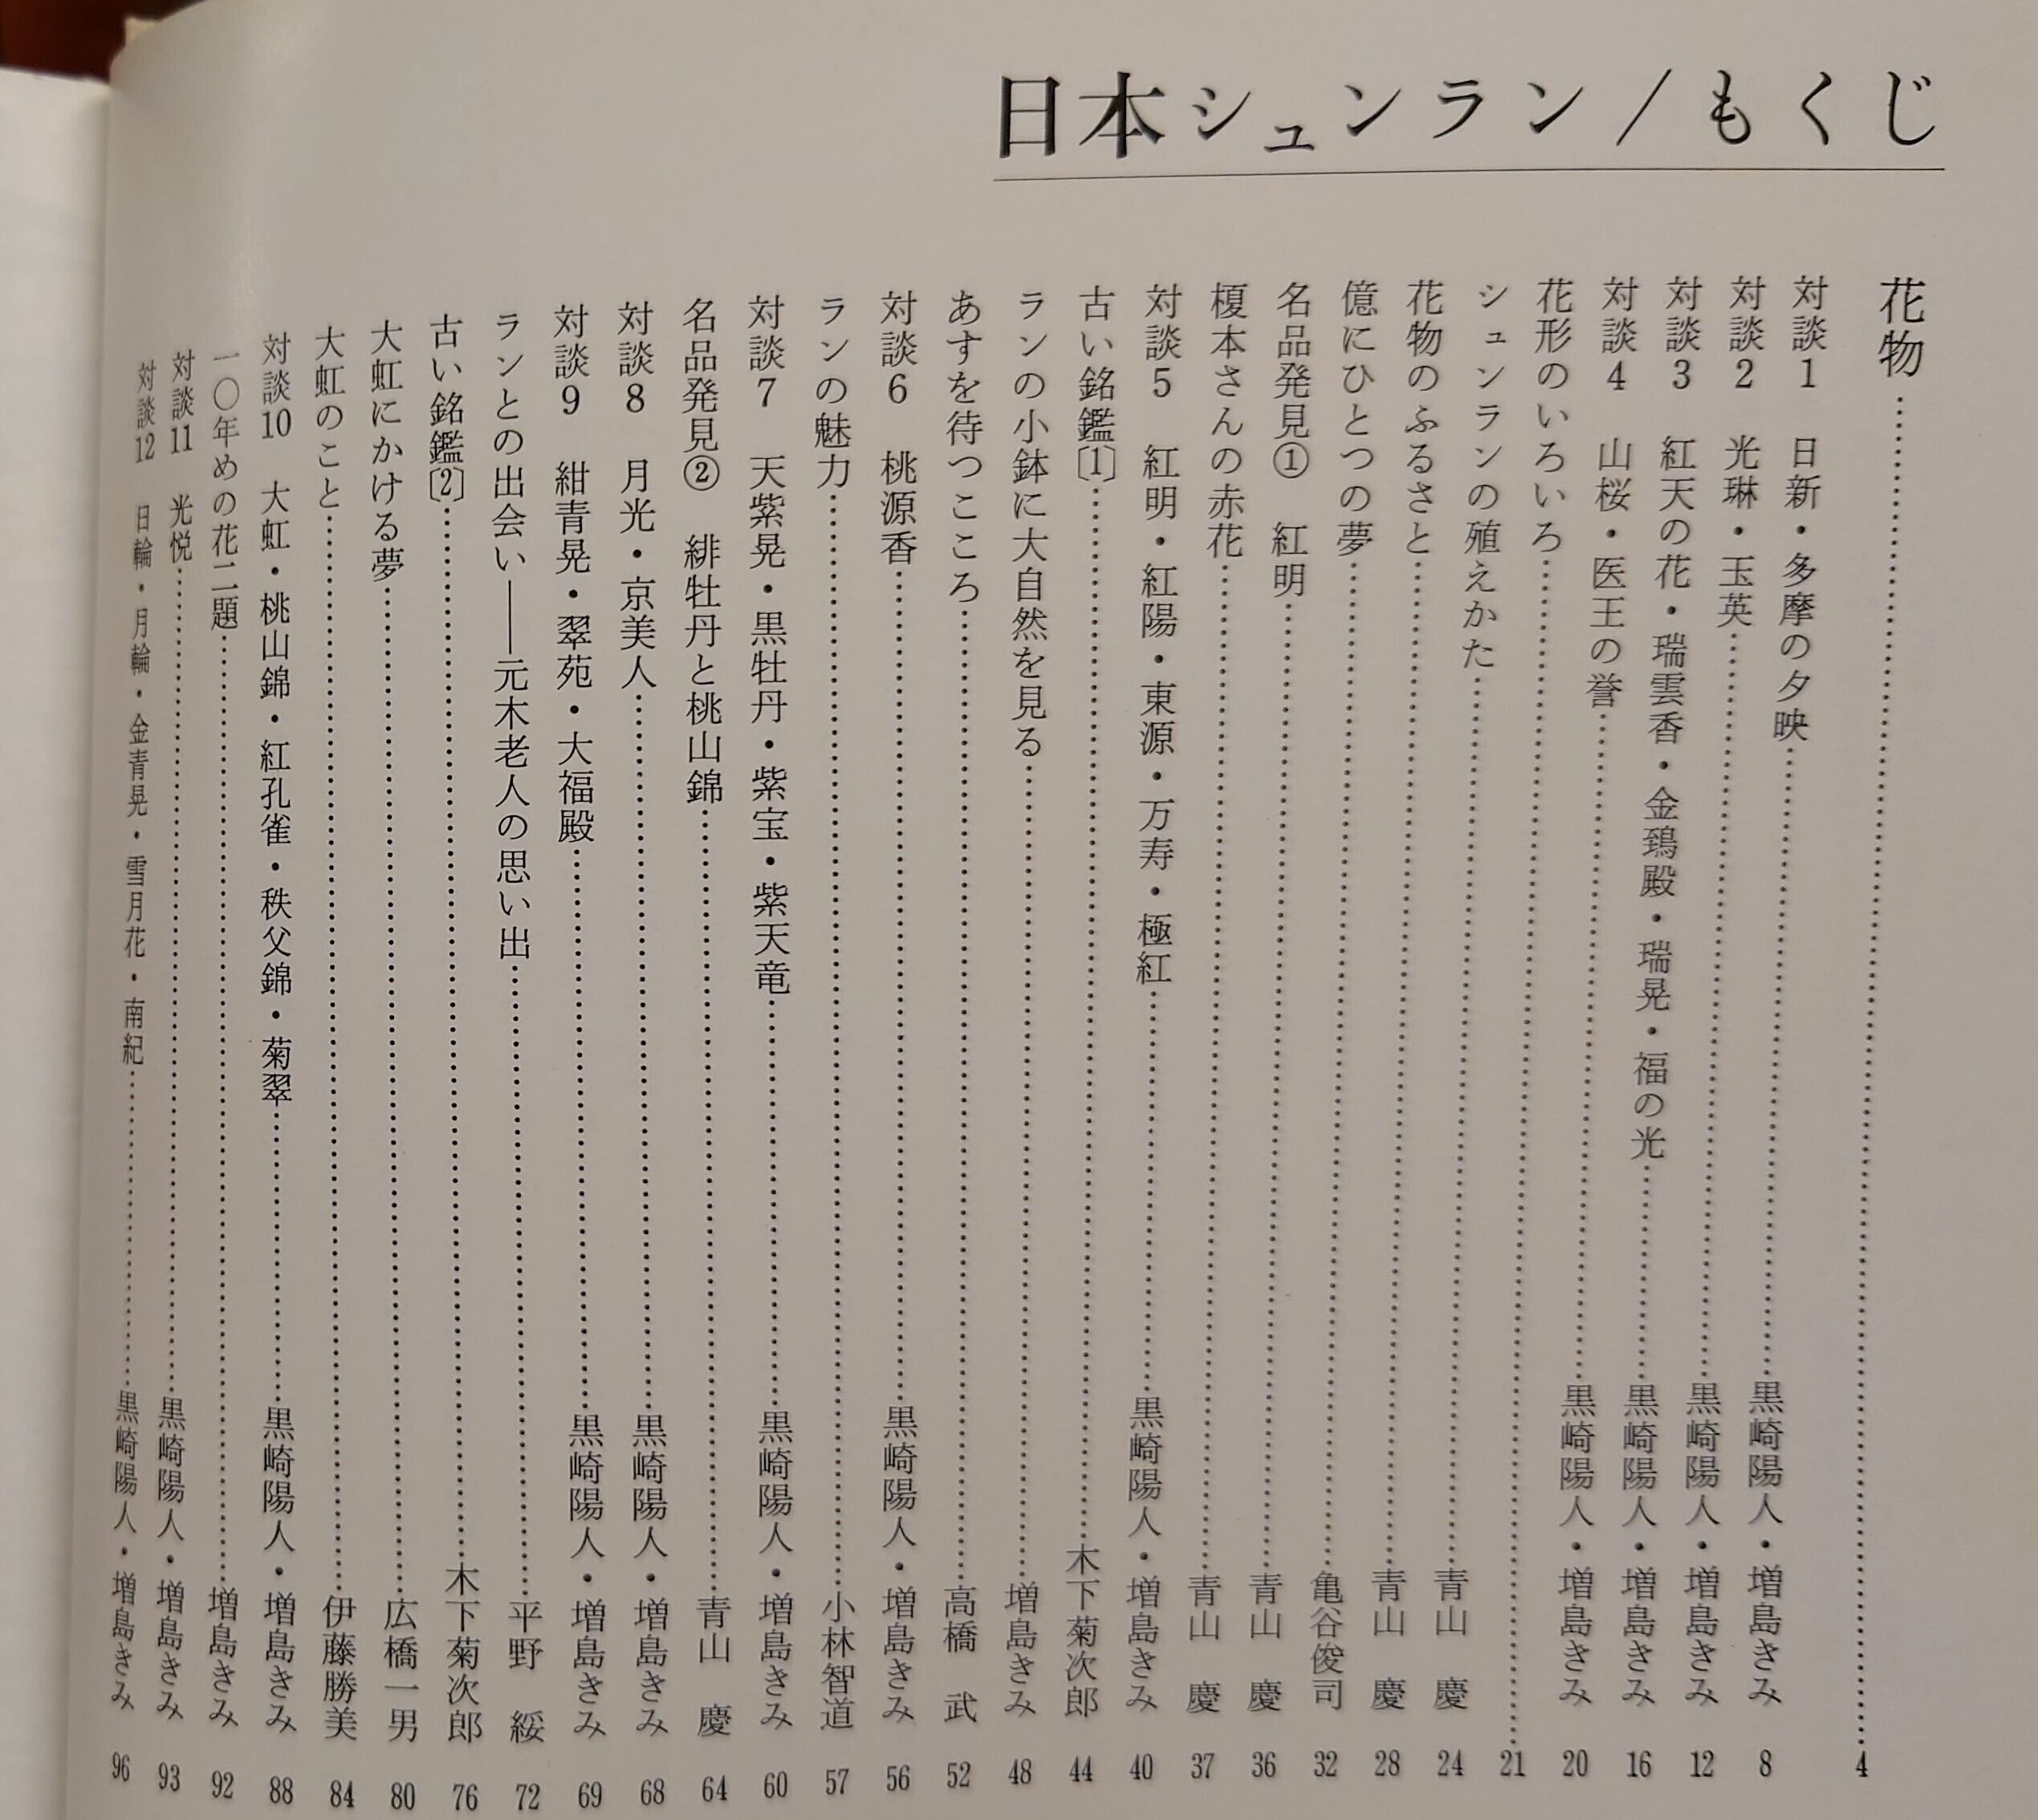 日本シュンラン/もくじ
花物…………4
対談1　日新・多摩の夕映…………黒崎陽人・増島きみ　8
対談2　光琳・玉英…………黒崎陽人・増島きみ　12
対談3　紅天の花・瑞雲香・金鵄殿・瑞晃・福の光…………黒崎陽人・増島きみ　16
対談4　山桜・医王の誉…………黒崎陽人・増島きみ　20
花形のいろいろ…………21
シュンランの殖えかた…………青山　慶　24
花物のふるさと…………青山　慶　28
億にひとつの夢…………亀谷俊司　32
名品発見①　紅明…………青山　慶　36
榎本さんの赤花…………青山　慶　37
対談5　紅明・紅陽・東源・万寿・極紅…………黒崎陽人・増島きみ　40
古い銘鑑〔1〕…………木下菊次郎　44
ランの小鉢に大自然を見る…………増島きみ　48
あすを待つこころ…………高橋　武　52
対談6　桃源香…………黒崎陽人・増島きみ　56
ランの魅力…………小林智道　57
対談7　天紫晃・黒牡丹・紫宝・紫天竜…………黒崎陽人・増島きみ　60
名品発見②　緋牡丹と桃山錦…………青山　慶　64
対談8　月光・京美人…………黒崎陽人・増島きみ　68
対談9　紺青晃・翠苑・大福殿…………黒崎陽人・増島きみ　69
ランとの出会い――元木老人の思い出…………平野　綏　72
古い銘鑑〔2〕…………木下菊次郎　76
大虹にかける夢…………広橋一男　80
大虹のこと…………伊藤勝美　84
対談10　大虹・桃山錦・紅孔雀・秩父錦・菊翠…………黒崎陽人・増島きみ　88
一〇年めの花二題…………増島きみ　92
対談11　光悦…………黒崎陽人・増島きみ　93
対談12　日輪・月輪・金青晃・雪月花・南紀…………黒崎陽人・増島きみ　96